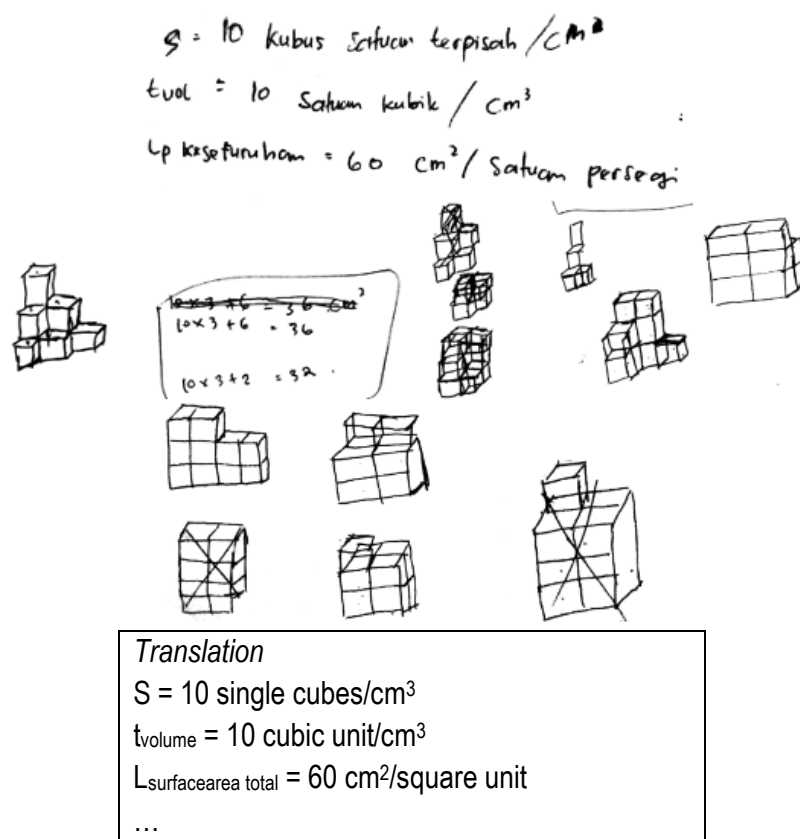 S = 10 kubus satuan terpisah / cm³
t vol = 10 satuan kubik / cm³
Lp keseluruhan = 60 cm² / satuan persegi
10 x 3 + 6 = 36 cm³
10 x 3 + 6 = 36
10 x 3 + 2 = 32
Translation
S = 10 single cubes/cm³
tvolume = 10 cubic unit/cm³
Lsurfacearea total = 60 cm²/square unit
…